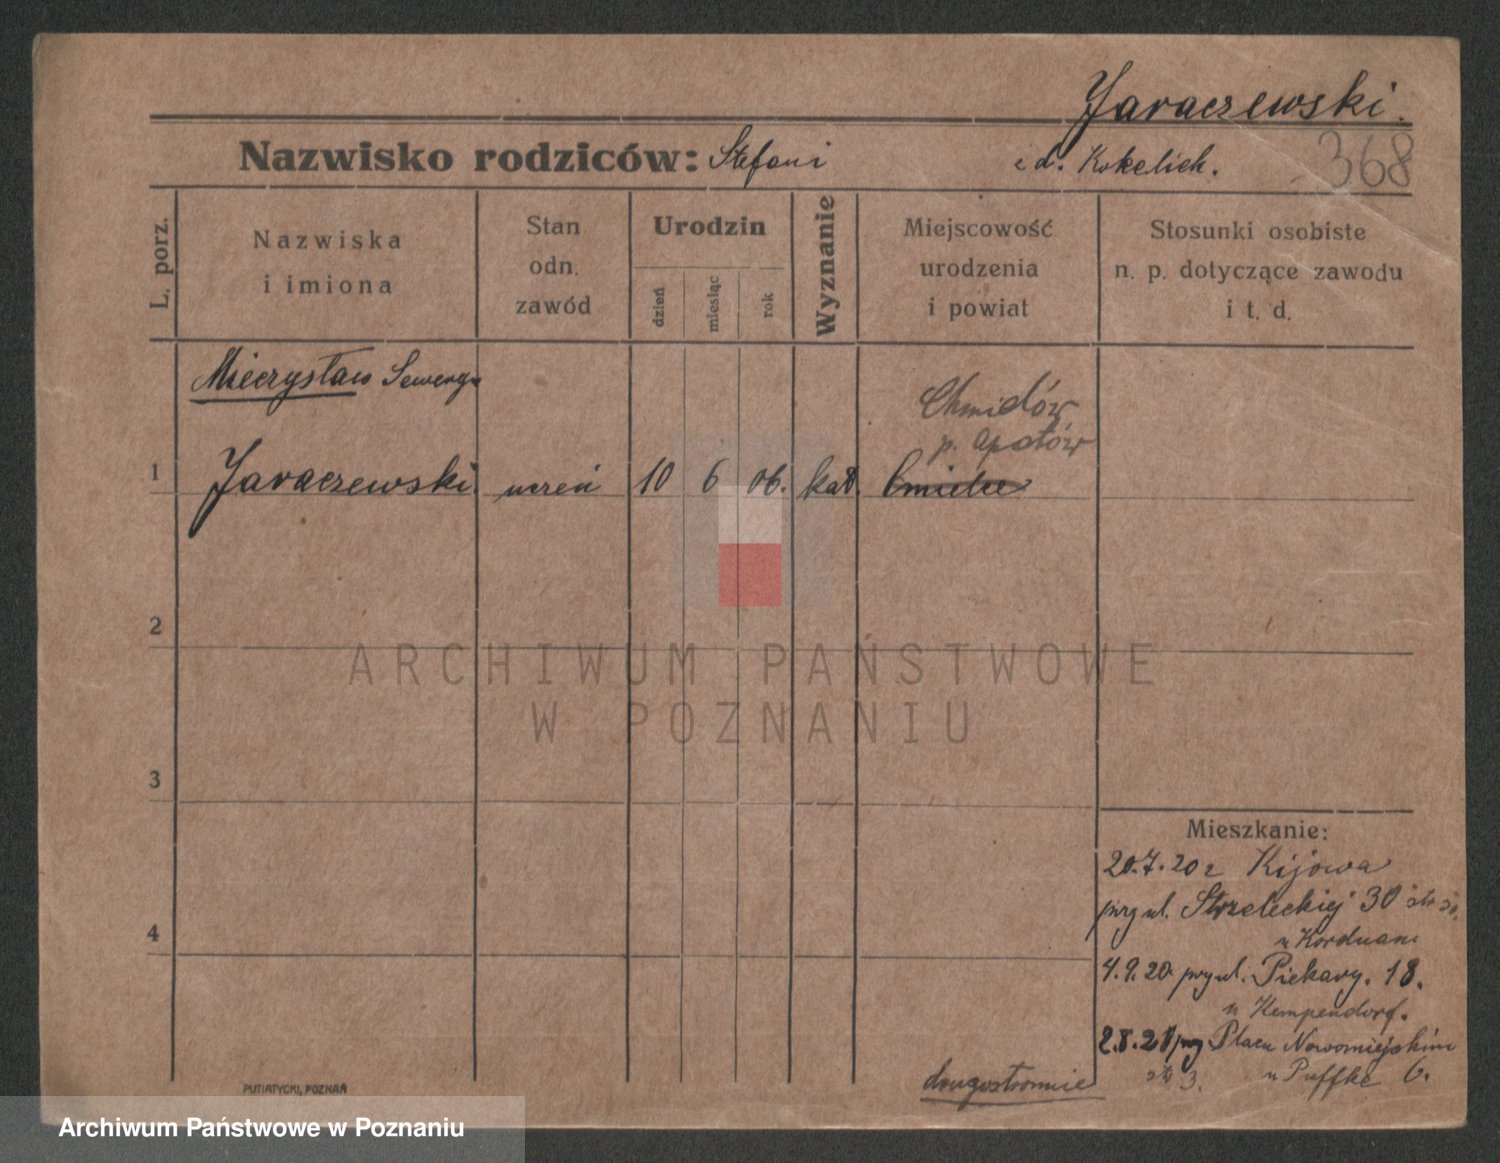 Jaraczewski.
Nazwisko rodziców: Stefani z d. Kokelich.
368
L. porz.
Nazwiska
i imiona
Stan
odn.
zawód
Urodzin
dzień
miesiąc
rok
Wyznanie
Miejscowość
urodzenia
i powiat
Stosunki osobiste
n. p. dotyczące zawodu
i t. d.
Mieczysław Seweryn
Chmidów
p. Opatów
1 Jaraczewski. uczeń 10 6 06. kat.
2
ARCHIWUM PAŃSTWOWE
W POZNANIU
3
Mieszkanie:
20.7.20 z Kijowa
przy ul. Strzeleckiej 30
4
u Korduan
4.9.20 przy ul. Piekary. 18.
u Kempendorf.
2.8.21 przy Placu Nowomiejskim
3. u Puffke 6.
drugostronnie
PUTIATYCKI, POZNAŃ
Archiwum Państwowe w Poznaniu